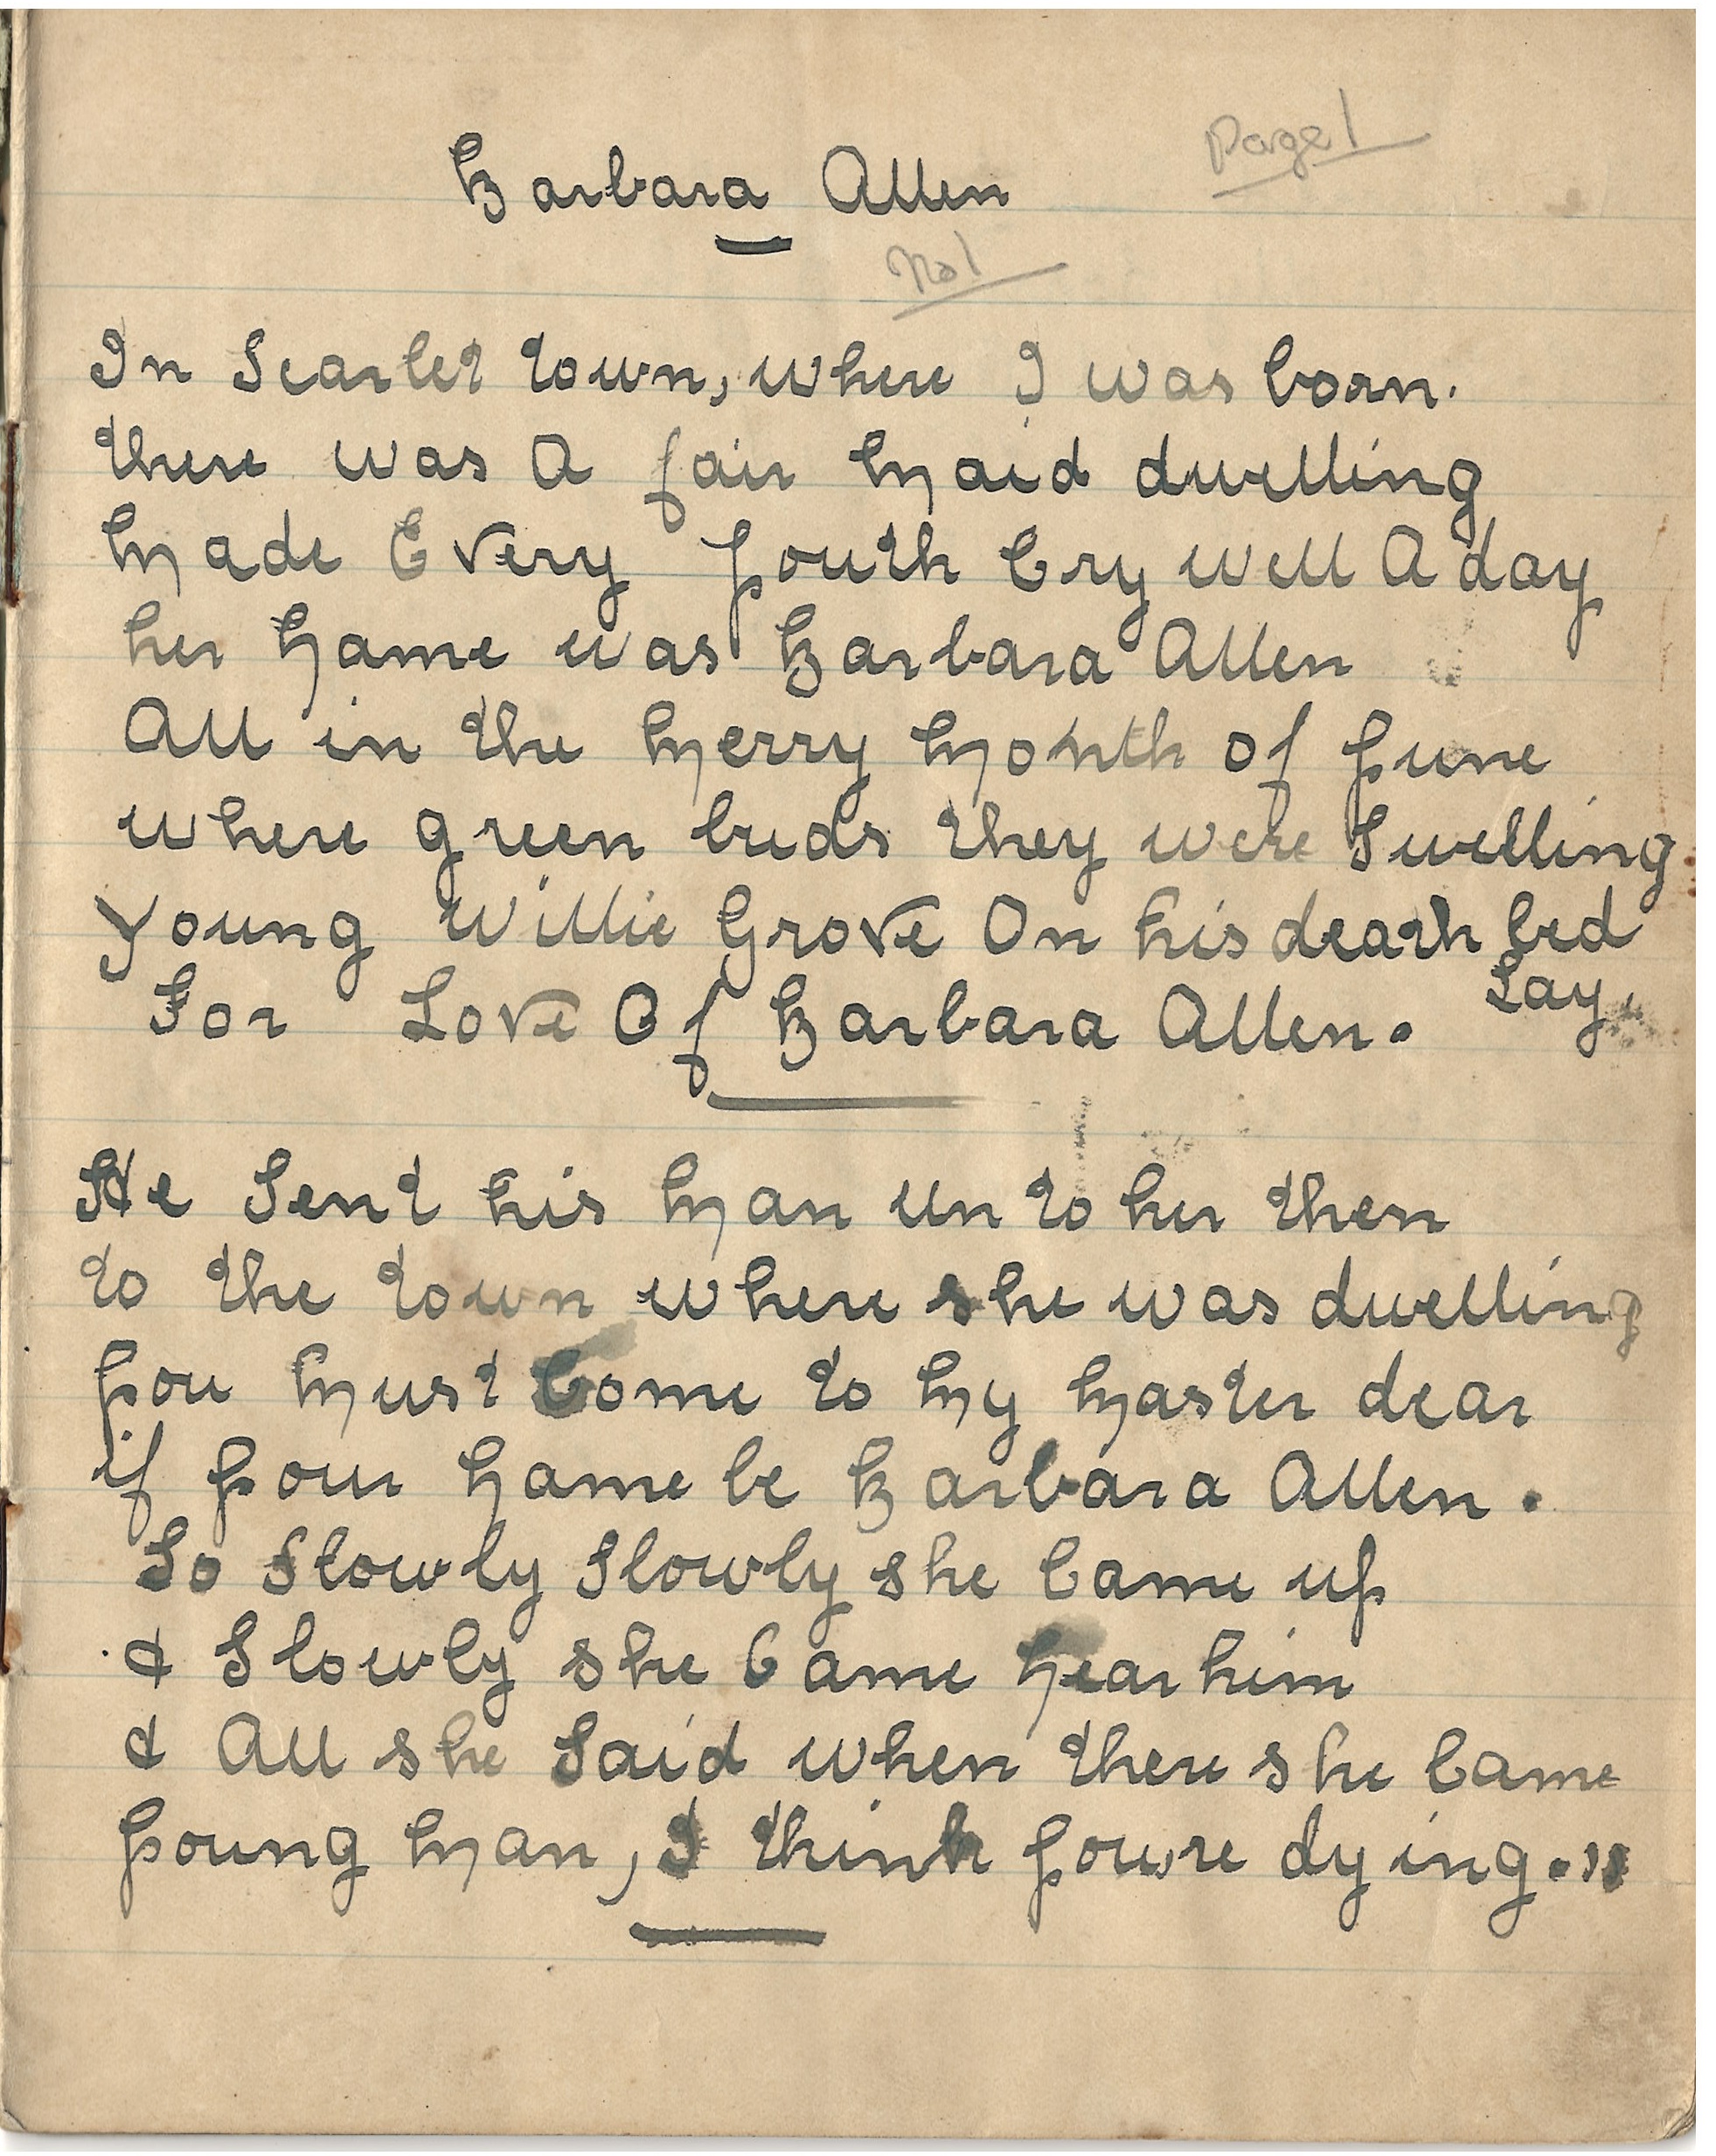 Page 1
Barbara Allen
No 1
In Scarlet town, where I was born.
there was A fair Maid dwelling
Made Every Youth Cry well A day
her Name was Barbara Allen
All in the Merry Month of June
where green buds they were Swelling
Young Willie Grove On his death bed
Lay.
For Love Of Barbara Allen.
He Sent his Man un to her then
to the town where she was dwelling
You Must Come to My Master dear
if Your Name be Barbara Allen.
So Slowly Slowly she Came up
& Slowly she Came Near him
& All she Said when there she Came
Young Man, I think You're dying."